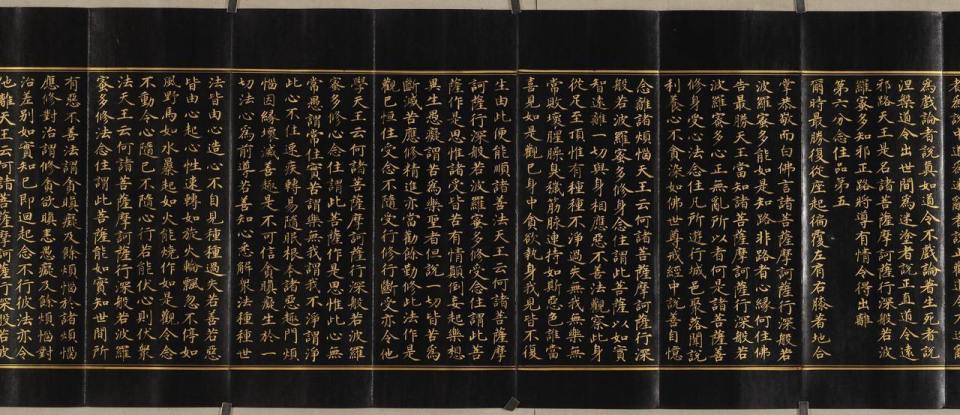 為戲論者說真如道令不戲論者生死者說
涅槃道令出世間為迷塗者說正直道令遠
邪路天王是名諸菩薩摩訶薩行深般若波
羅蜜多知邪正路將導有情令得出離
第六分念住品第五
爾時最勝復從座起偏覆左肩右膝著地合
掌恭敬而白佛言諸菩薩摩訶薩行深般若
波羅蜜多能如是知路非路者心緣何住佛
告最勝天王當知諸菩薩摩訶薩行深般若
波羅蜜多心正無亂所以者何是諸菩薩善
修身受心法念住凡所遊行城邑聚落聞說
利養心不貪染如佛世尊戒經中說善自憶
念離諸煩惱天王云何諸菩薩摩訶薩行深
般若波羅蜜多修身念住謂此菩薩以如實
智遠離一切與身相應惡不善法觀察此身
從足至頂惟有種種不淨過失無我無樂無
常敗壞腥臊臭穢筋脈連持如斯惡色誰當
喜見如是觀已身中貪欲執身我見皆不復
生由此便能順諸善法天王云何諸菩薩摩
訶薩行深般若波羅蜜多修受念住謂此菩
薩作是思惟諸受皆苦有情顛倒妄起樂想
異生愚癡謂苦為樂聖者但說一切皆苦為
斷滅苦應修精進亦當勸餘勤修此法作是
觀已恒住受念不隨受行修行斷受亦令他
學天王云何諸菩薩摩訶薩行深般若波羅
蜜多修心念住謂此菩薩作是思惟此心無
常愚謂常住實苦謂樂無我謂我不淨謂淨
此心不住速疾轉易隨眠根本諸惡趣門煩
惱因緣壞滅善趣是不可信貪瞋癡主於一
切法心為前導若善知心悉解眾法種種世
法皆由心造心不自見種種過失若善若惡
皆由心起心性速轉如旋火輪飄忽不停如
風野馬如水暴起如火能燒作如是觀令念
不動令心隨已不隨心行若能伏心則伏眾
法天王云何諸菩薩摩訶薩行深般若波羅
蜜多修法念住謂此菩薩能如實知世間所
有惡不善法謂貪瞋癡及餘煩惱於諸煩惱
應修對治謂修貪欲瞋恚愚癡及餘煩惱對
治差別如實知已即迴起念不行彼法亦令
他離天王云何諸菩薩摩訶薩行深般若波